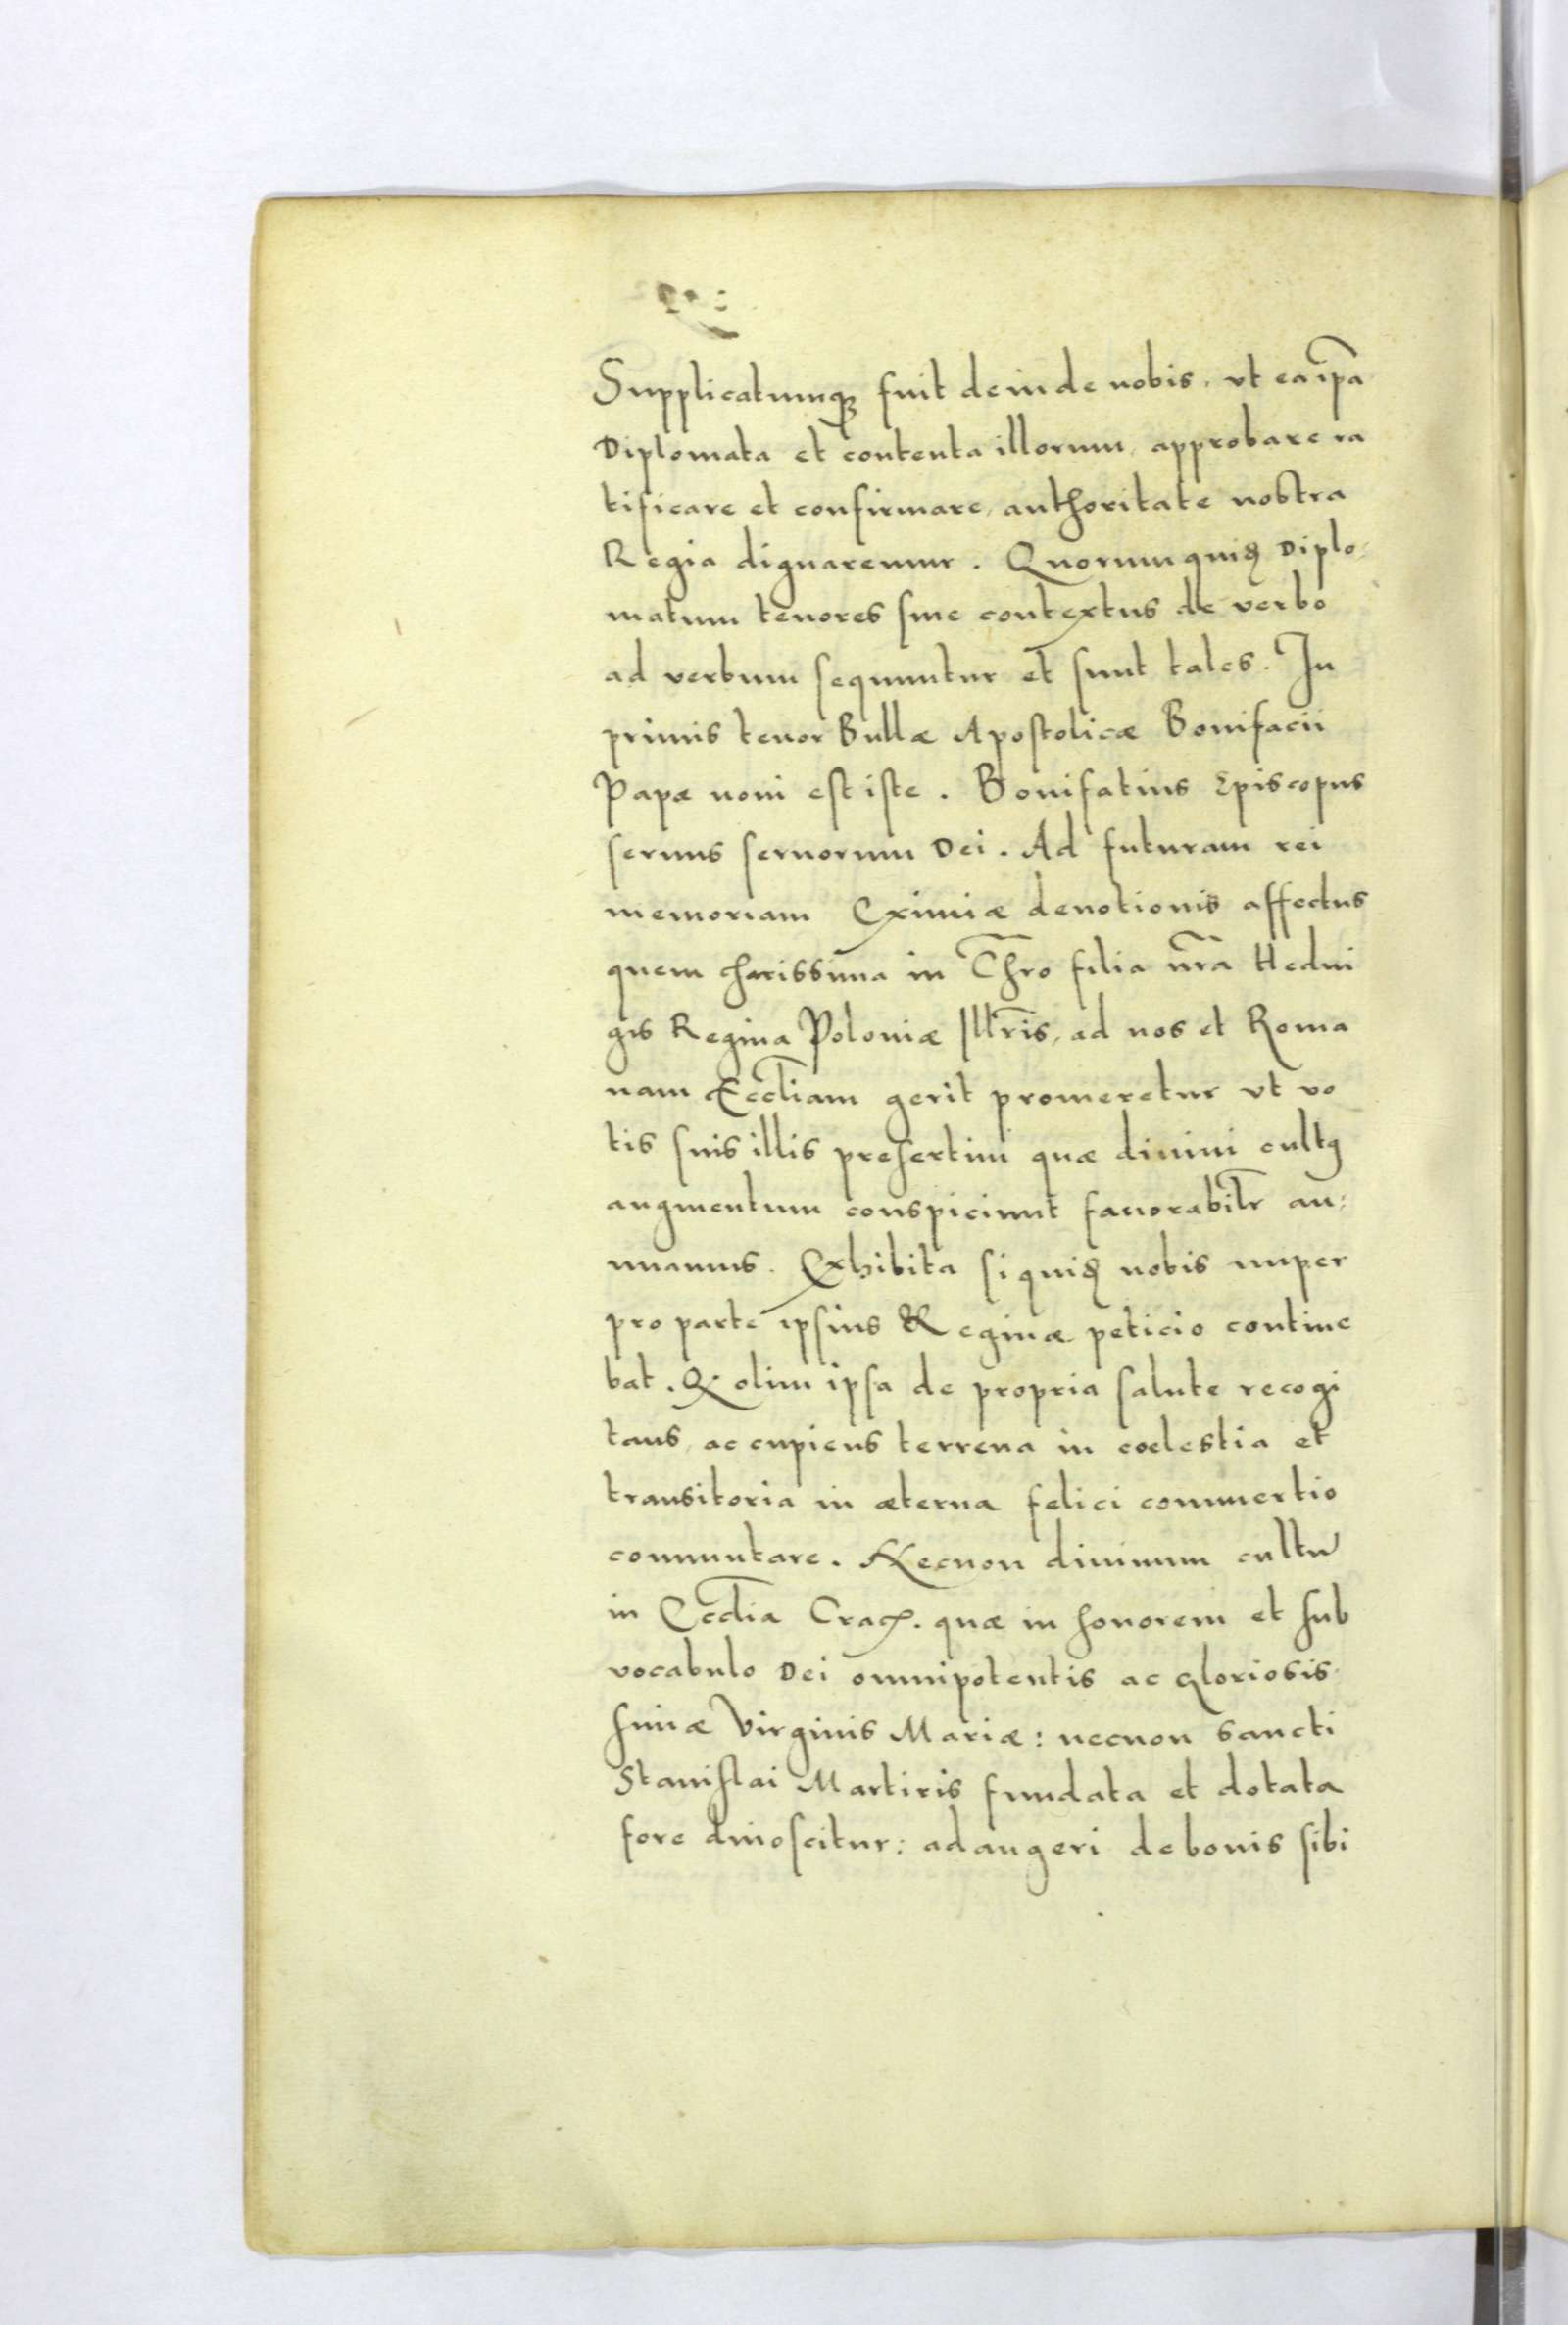 Supplicatumq; fuit deinde nobis, vt ea ip̃a
Diplomata et contenta illorum, approbare ra
tificare et confirmare, authoritate nostra
Regia dignaremur. Quorumquiꝫ Diplo-
matum tenores siue contextus de verbo
ad verbum sequuntur et sunt tales. In
primis tenor Bullæ Apostolicæ Bonifacii
Papæ noni est iste. Bonifatius Episcopus
seruus seruorum Dei. Ad futuram rei
memoriam Eximiæ deuotionis affectus
quem charissima in Chr̃o filia nr̃a Hedui
gis Regina Poloniæ Illr̃is, ad nos et Roma
nam Eccl̃iam gerit promeretur vt vo
tis suis illis presertim quæ diuini cultꝰ
augmentum conspiciunt fauorabilr̃ an:
nuamus. Exhibita siquiꝫ nobis nuper
pro parte ipsius Reginæ peticio contine
bat. Q olim ipsa de propria salute recogi
tans, ac cupiens terrena in coelestia et
transitoria in æterna felici commertio
commutare. Necnon diuinum cultũ
in Eccl̃ia Crac̃. quæ in honorem et sub
vocabulo Dei omnipotentis ac gloriosis-
simæ Virginis Mariæ: necnon sancti
Stanislai Martiris fundata et dotata
fore dinoscitur: adaugeri de bonis sibi